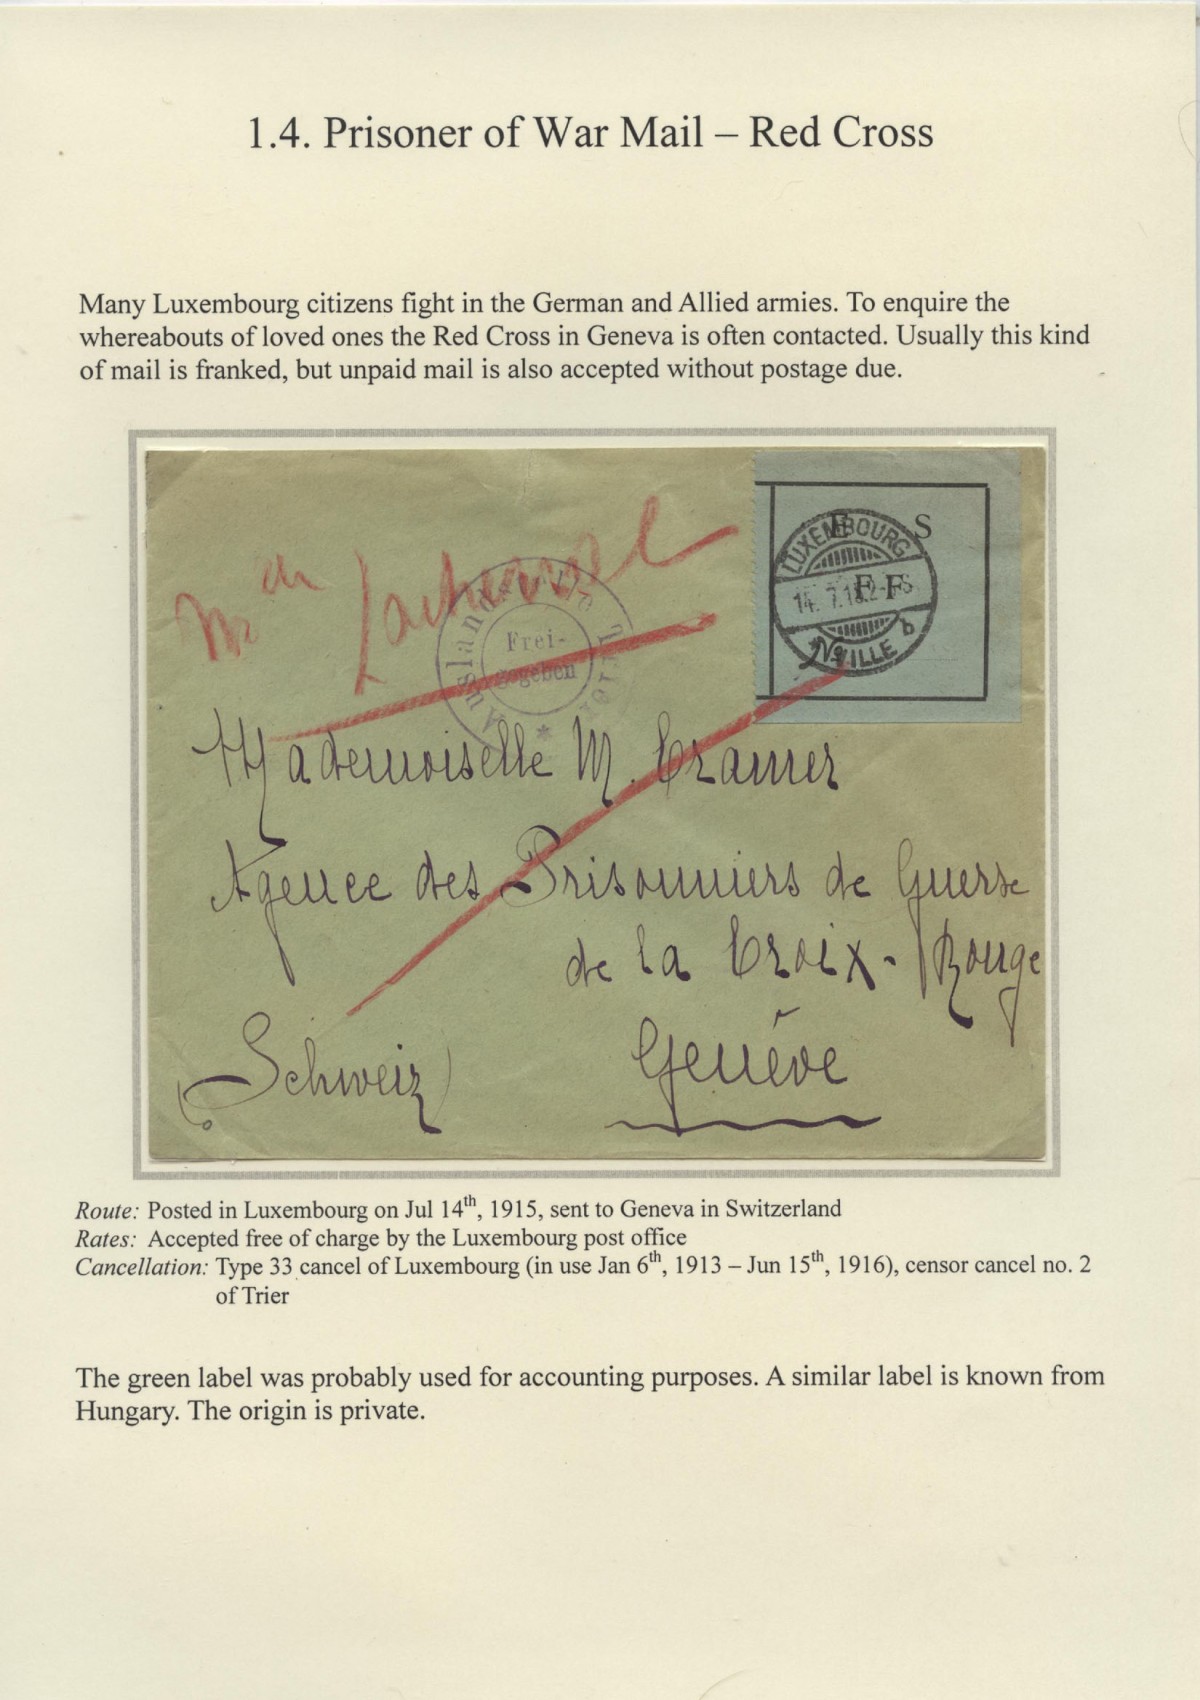 1.4. Prisoner of War Mail – Red Cross
Many Luxembourg citizens fight in the German and Allied armies. To enquire the
whereabouts of loved ones the Red Cross in Geneva is often contacted. Usually this kind
of mail is franked, but unpaid mail is also accepted without postage due.
E S
F F
LUXEMBOURG
14. 7. 15
b
VILLE
Frei-
gegeben
Mademoiselle M. Cramer
Agence des Prisonniers de Guerre
de la Croix-Rouge
Genève
(Schweiz)
Route: Posted in Luxembourg on Jul 14th, 1915, sent to Geneva in Switzerland
Rates: Accepted free of charge by the Luxembourg post office
Cancellation: Type 33 cancel of Luxembourg (in use Jan 6th, 1913 – Jun 15th, 1916), censor cancel no. 2
of Trier
The green label was probably used for accounting purposes. A similar label is known from
Hungary. The origin is private.